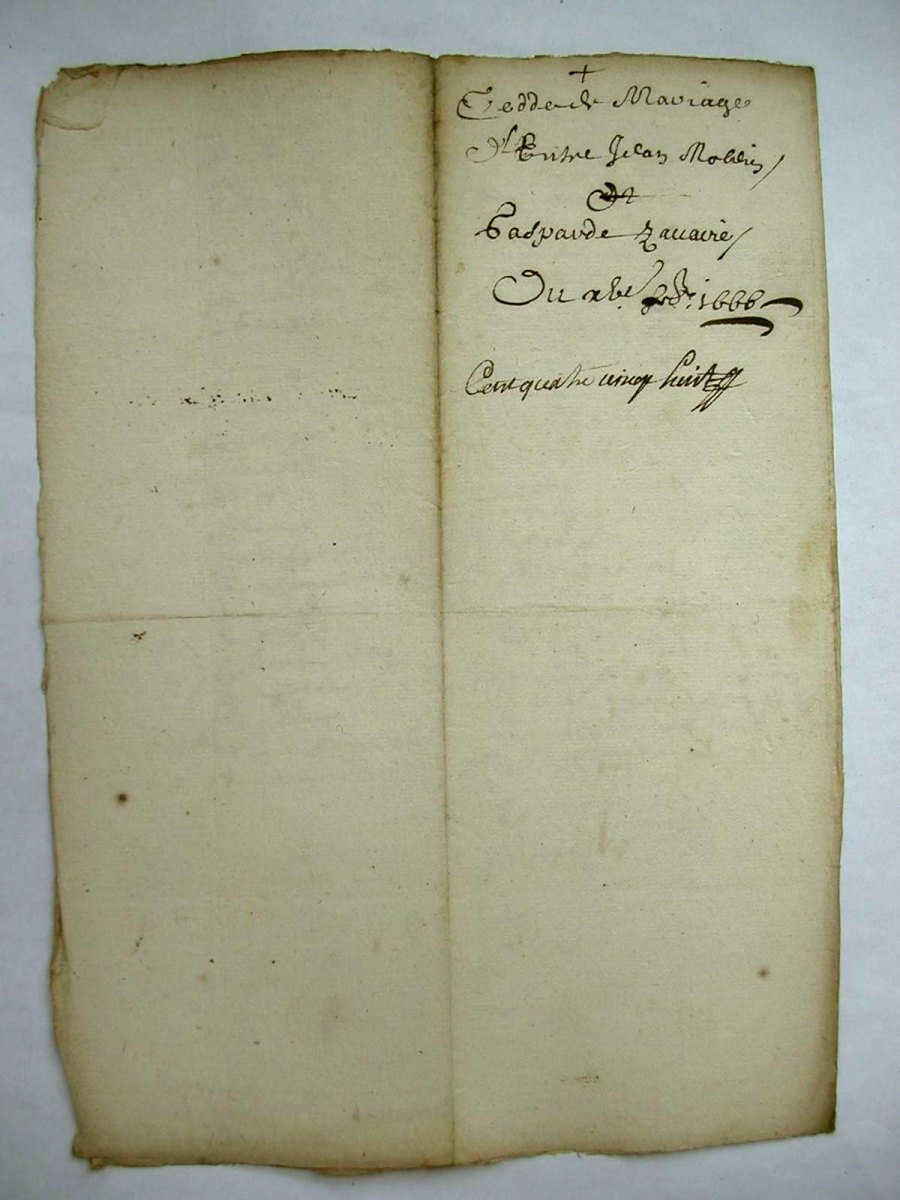 +
Cedde de Mariage
d'Entre Jean Mollin /
Et
Gasparde Zacarie /
Du xbe 1666
Cent quatre vingt huit